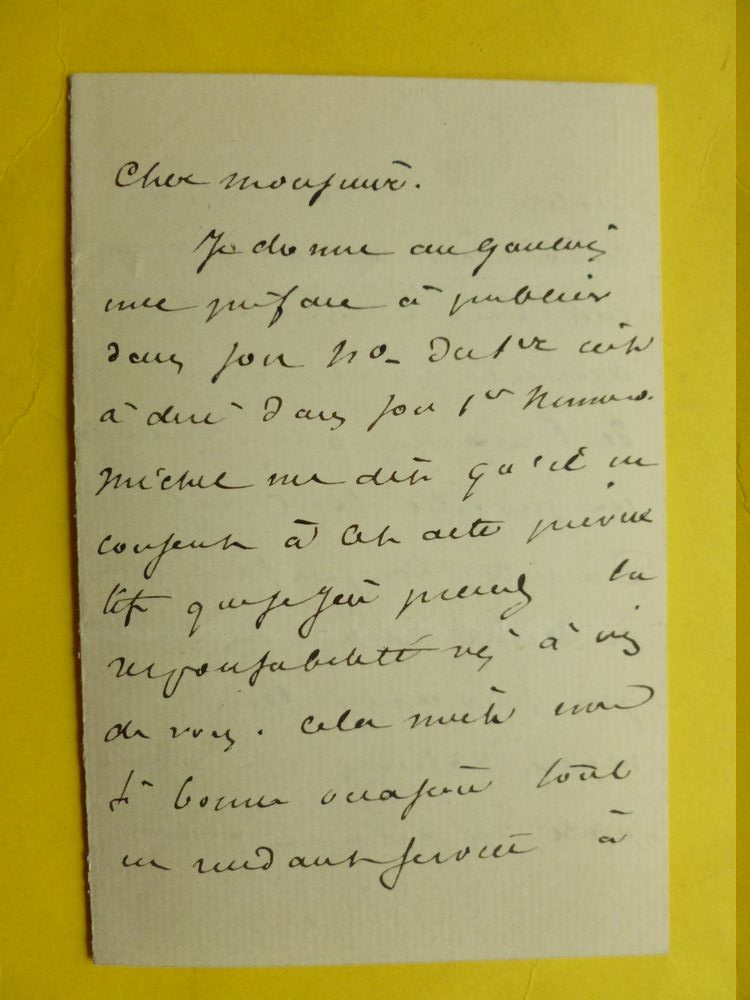 Cher monsieur.
Je donne au Gaulois
une préface à publier
dans son no- du 1er c'est
à dire dans son 1er numero.
Michel me dit qu'il ne
consent à cet acte
que si j'en prends la
responsabilité vis à vis
de vous. Cela m'est une
si bonne occasion tout
en rendant service à